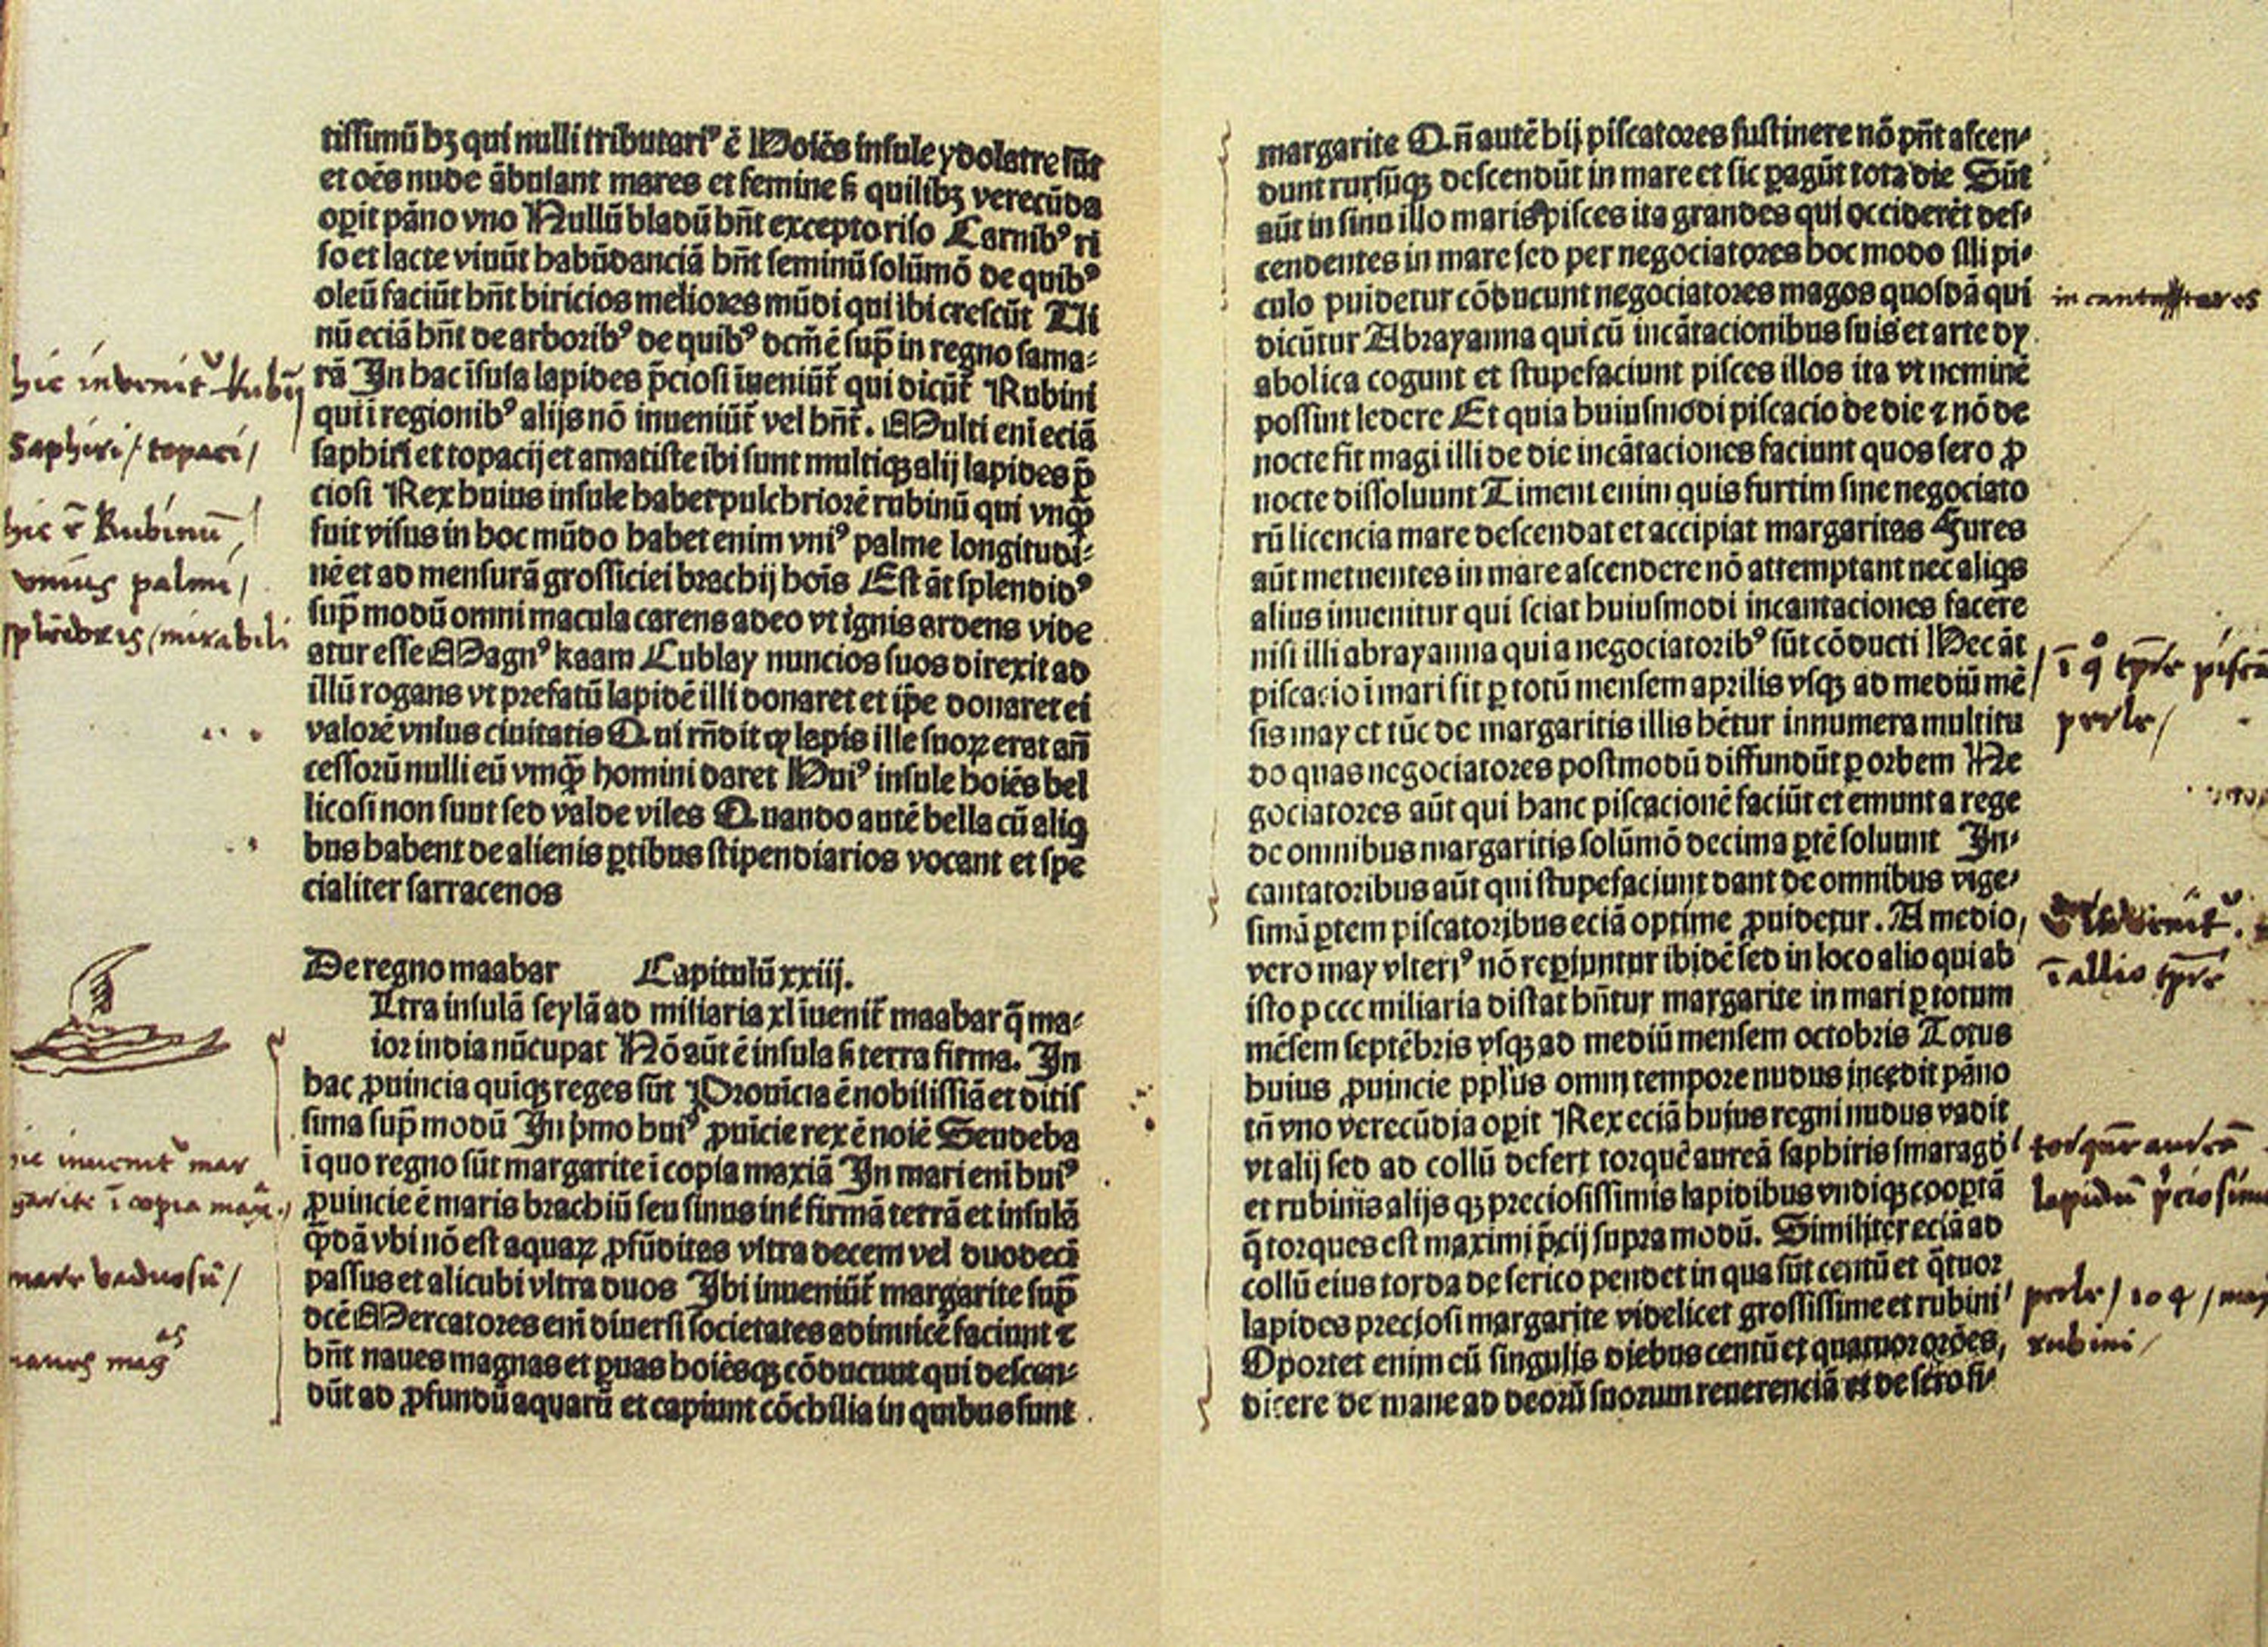 tissimū hȝ qui nulli tributariꝰ ē Hoiēs insule ydolatre sūt
et oēs nude ābulant mares et femine ß quilibȝ verecūda
opit pāno vno Nullū bladū hn̄t excepto riso Carnibꝰ ri
so et lacte viuūt habūdanciā hn̄t seminū solūmō de quibꝰ
oleū faciūt hn̄t biricios meliores mūdi qui ibi crescūt Ui
nū eciā hn̄t de arboribꝰ de quibꝰ dcm̄ ē sup̄ in regno sama⸗
rā In hac īsula lapides p̄ciosi īueniūt̄ qui dicūt̄ Rubini
qui ī regionibꝰ alijs nō inueniūt̄ vel hn̄t̄. Multi eni eciā
saphiri et topacij et amatiste ibi sunt multiqȝ alij lapides p̄
ciosi Rex huius insule habet pulchriorē rubinū qui vnqȝ̄
fuit visus in hoc mūdo habet enim vniꝰ palme longitudi⸗
nē et ad mensurā grossiciei brachij hois Est āt splendidꝰ
sup̄ modū omni macula carens adeo vt ignis ardens vide
atur esse Magnꝰ kaam Cublay nuncios suos direxit ad
illū rogans vt prefatū lapidē illi donaret et ip̄e donaret ei
valorē vnius ciuitatis Qui rn̄dit ꝙ lapis ille suoꝝ erat an̄
cessorū nulli eū vmqȝ̄ homini daret Huiꝰ insule hoiēs bel
licosi non sunt sed valde viles Quando autē bella cū aliq
bus habent de alienis ꝑtibus stipendiarios vocant et spe
cialiter sarracenos
De regno maabar Capitulū xxiij.
Ltra insulā seylā ad miliaria xl īuenit̄ maabar q̄ ma⸗
ior india nūcupat Nō aūt ē insula ß terra firma. In
hac ꝓuincia quiqȝ reges sūt Prouīcia ē nobilissiā et ditis
sima sup̄ modū In pͥmo huiꝰ ꝓuicie rex ē noiē Sendeba
i quo regno sūt margarite i copia maxiā In mari eni huiꝰ
ꝓuincie ē maris brachiū seu sinus int̄ firmā terrā et insulā
qȝ̄dā vbi nō est aquaꝝ ꝓfūditas vltra decem vel duodeci
passus et alicubi vltra duos Ibi inueniūt̄ margarite sup̄
dcē Mercatores eni diuersi societates adinuicē faciunt ⁊
hn̄t naues magnas et ꝑuas hoiēsqȝ cōducunt qui descen⸗
dūt ad ꝓfundū aquarū et capiunt cōchilia in quibus sunt
hic invenit Rubīj
Saphiri / topaci /
hic ē Rubinū
vnius palmi /
splēdoris / mirabili
hic inuenit mar
garite ī copia max.
mare vaduosū /
naues magᵃˢ
margarite Qn̄ autē hij piscatores sustinere nō pn̄t ascen⸗
dunt rursūqȝ descendūt in mare et sic ꝑagūt tota die Sūt
aūt in sinu illo maris pisces ita grandes qui occiderēt des⸗
cendentes in mare sed per negociatores hoc modo illi pi⸗
culo ꝓuidetur cōducunt negociatores magos quosdā qui
dicūtur Abrayanna qui cū incātacionibus suis et arte dy
abolica cogunt et stupefaciunt pisces illos ita vt neminē
possint ledere Et quia huiusmodi piscacio de die ⁊ nō de
nocte fit magi illi de die incātaciones faciunt quos sero ꝓ
nocte dissoluunt Timent enim quis furtim sine negociato
rū licencia mare descendat et accipiat margaritas Fures
aūt metuentes in mare ascendere nō attemptant nec aliqs
alius inuenitur qui sciat huiusmodi incantaciones facere
nisi illi abrayanna qui a negociatoribꝰ sūt cōducti Hec āt
piscacio i mari fit ꝑ totū mensem aprilis vsqȝ ad mediū mē
sis may et tūc de margaritis illis hētur innumera multitu
do quas negociatores postmodū diffundūt ꝑ orbem Ne
gociatores aūt qui hanc piscacionē faciūt et emunt a rege
de omnibus margaritis solūmō decima ꝑtē soluunt In⸗
cantatoribus aūt qui stupefaciunt dant de omnibus vige⸗
simā ꝑtem piscatoribus eciā optime ꝓuidetur. A medio
vero may vlteriꝰ nō reꝑiuntur ibidē sed in loco alio qui ab
isto ꝑ ccc miliaria distat hn̄tur margarite in mari ꝑ totum
mēsem septēbris vsqȝ ad mediū mensem octobris Totus
huius ꝓuincie ppl'us omni tempore nudus incedit pāno
tn̄ vno verecūdia opit Rex eciā huius regni nudus vadit
vt alij sed ad collū defert torquē aureā saphiris smaragd'
et rubinis alijs qȝ preciosissimis lapidibus vndiqȝ coopta
q̄ torques est maximi p̄cij supra modū. Similiter eciā ad
collū eius torda de serico pendet in qua sūt centū et q̄tuor
lapides preciosi margarite videlicet grossissime et rubini
Oportet enim cū singulis diebus centū et quatuor orōes
dicere de mane ad deorū suorum reuerenciā et de sero si⸗
incantatores
ī qͦ tp̄re pisca
perle /
ī allio tp̄re
torquē aureā
lapidū p̄ciosim
perle / 104 / mag
rubini /